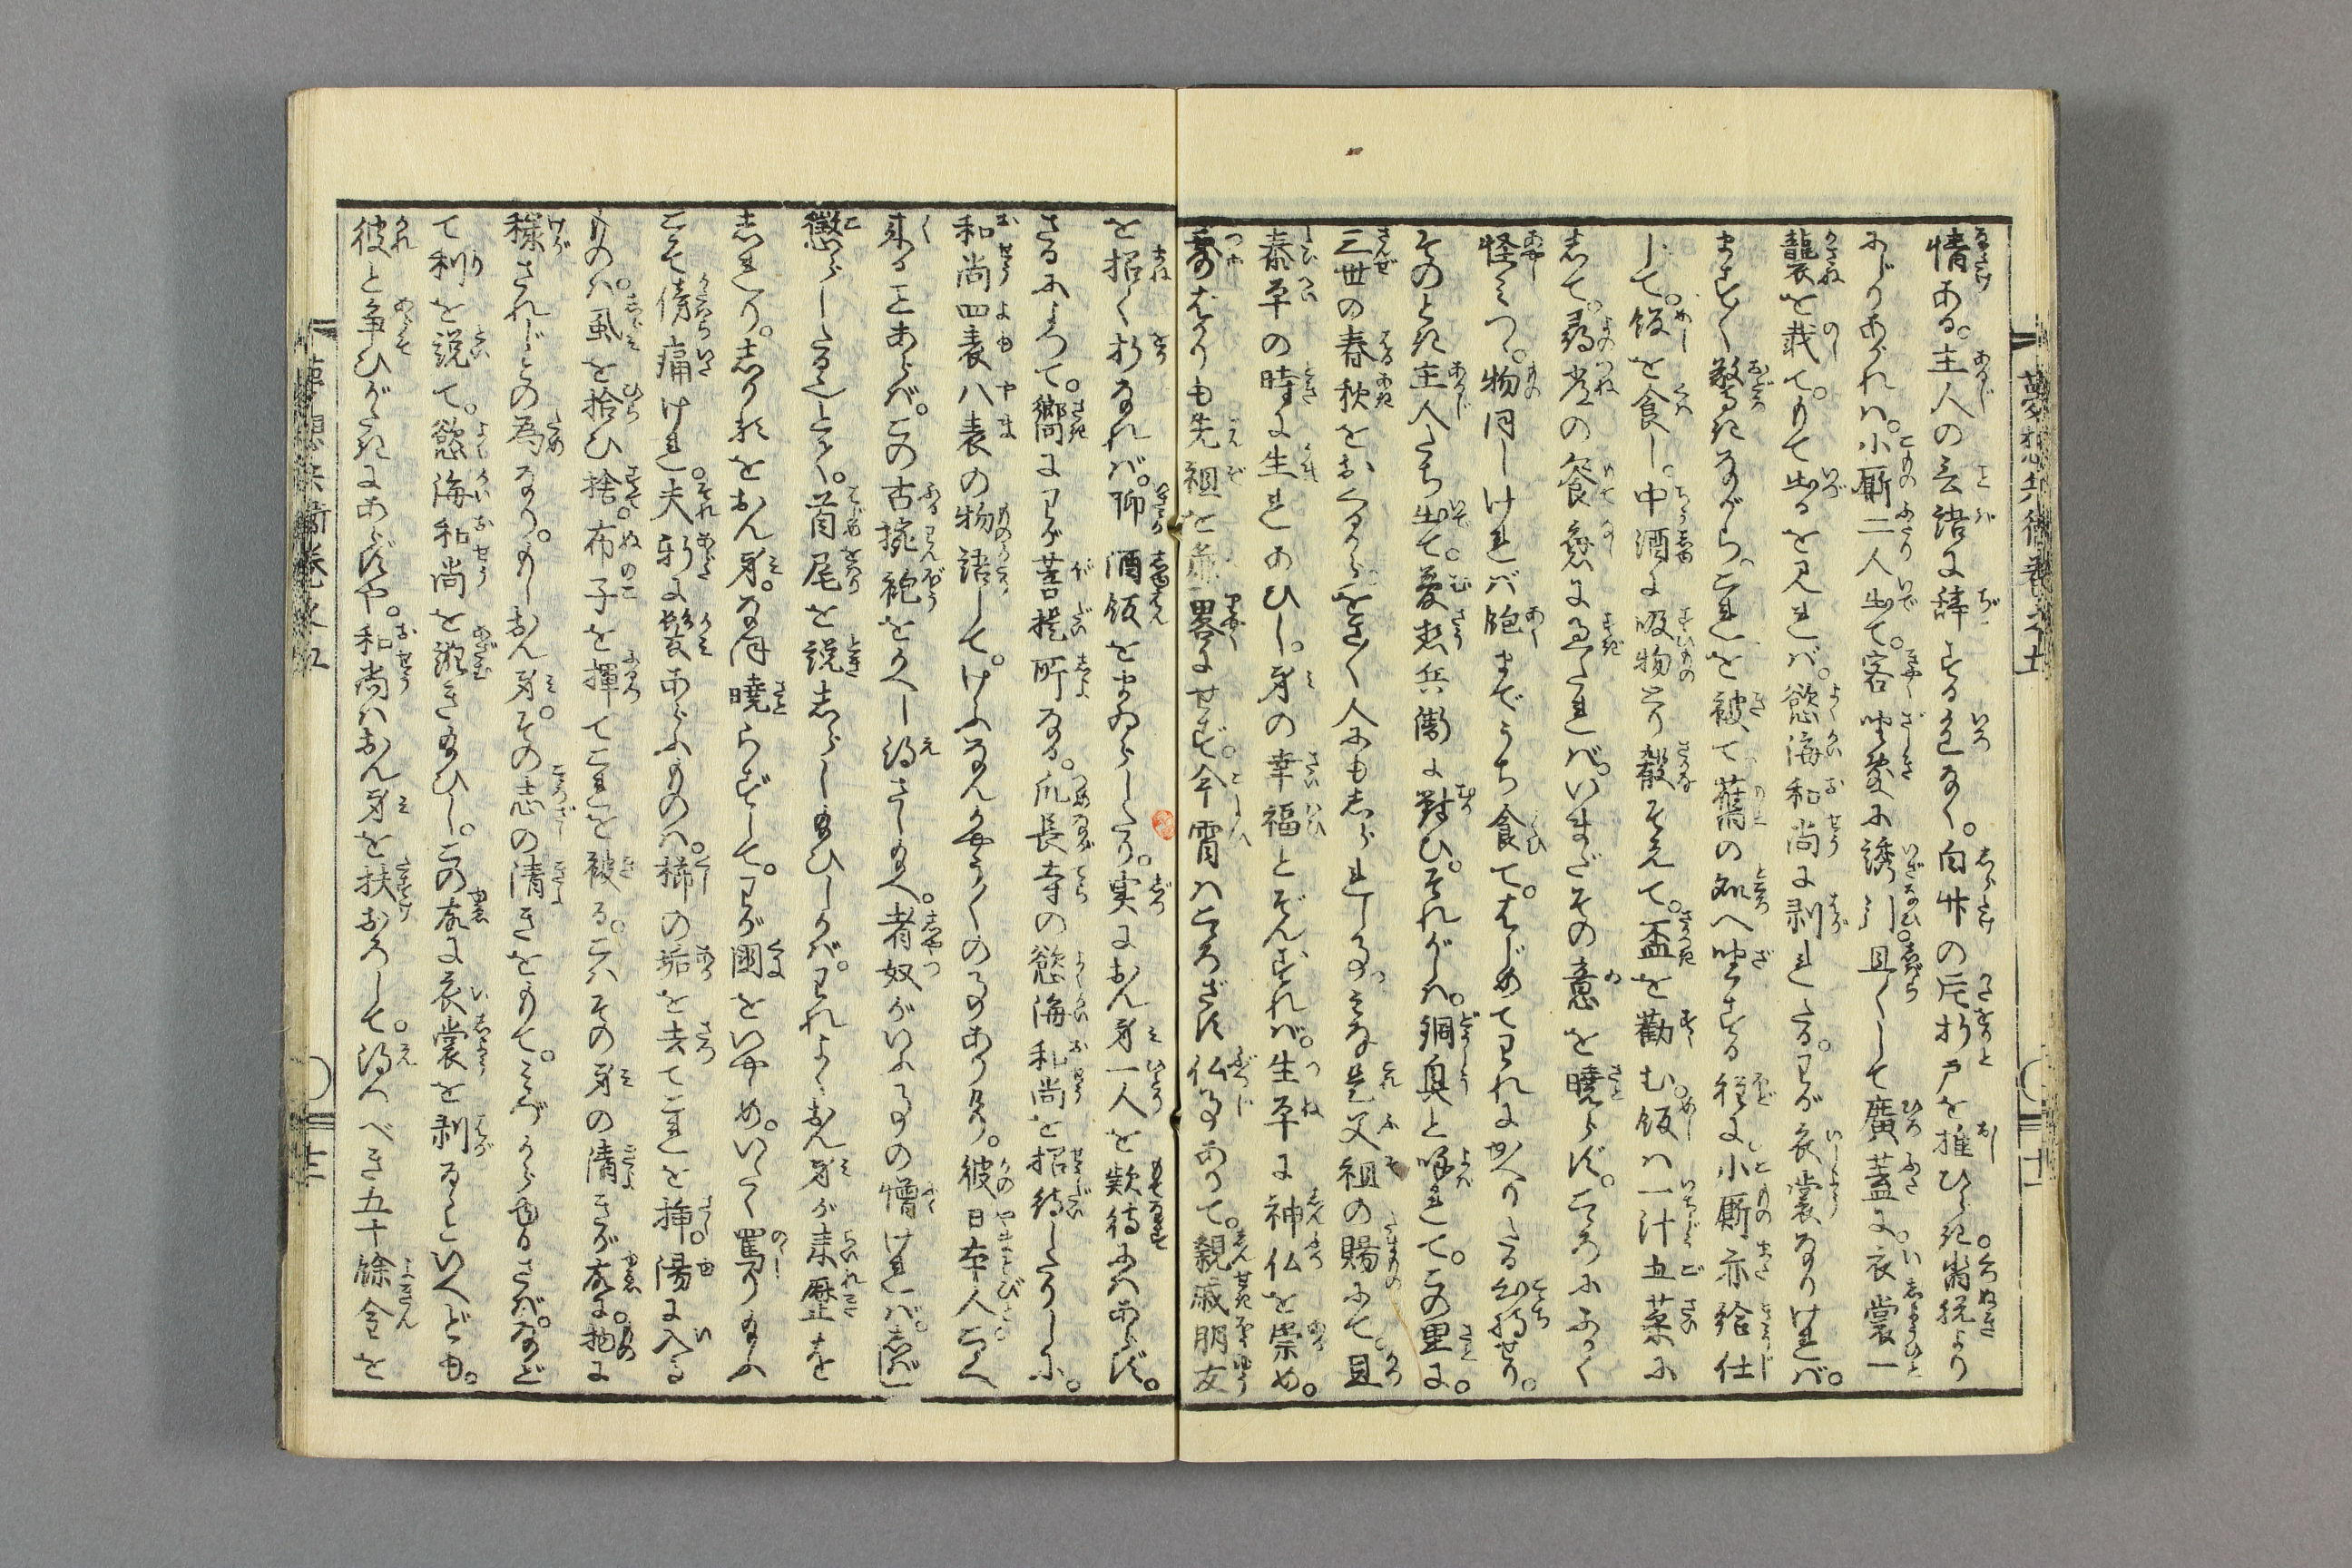 情ある。主人の言語に辞する色なく。白丁の庇折戸を推ひらき。背後より
にじりあがれば。小厮二人出て。客座敷に誘引。且くして廣蓋に。衣裳一
襲を載て。もて出るを見れば。慾海和尚に剥れたる。わが衣裳なりければ。
ますます驚きながら。これを被て舊の処へ坐する程に小厮亦給仕
して。飯を食し。中酒に吸物あり殽そえて。盃を勸む。飯は一汁五菜に
して。尋常の餐應にまされば。いまだその意を暁らず。こころにふかく
怪みつ。物ほしければ飽までうち食て。はじめてわれにかへりたる心持せり。
そのとき主人たち出て。夢想兵衛に對ひ。それがしは。銅臭と喚れて。この里に。
三世の春秋をおくるから。をさをさ人にもしられしこと。みな是父祖の賜にて。且
泰平の時に生れあひし。身の幸福とぞんずれば。生平に神仏を崇め。
露ばかりも先祖を麁畧にせず。今宵はこころざす仏事ありて。親戚朋友
を招く折なれば。即酒飯をまゐらしたり。実におん身一人を歎待にはあらず。
さるによつて。嚮にわが菩提所なる。爪長寺の慾海和尚を招待したりしに。
和尚四表八表の物語して。けふなんかやうかやうの事あり。彼日本人ここへ
来ることあらば。この古挽袍をかへし得さし給へ。者奴がいふことの憎ければ。しばし
懲らしたるなりとて。首尾を説しらし給ひしかば。われよくおん身が来歴を
しれり。しかるをおん身。なほ暁らずして。わが國をいやしめ。いたく罵り給ふ
こそ傍痛けれ。夫新に髪あらふものは。櫛の垢を去てこれを挿。湯に入る
ものは。虱を拾ひ捨。布子を揮てこれを被る。こはその身の清きが故に。物に
穢されじとの為なり。もしおん身。その志の清きをもて。みづから守らば。などて
て利を説て。慾海和尚を欺き給ひし。この故に衣裳を剥るといへども。
彼と争ひがたきにあらずや。和尚はおん身を扶おろして。得べき五十餘金を